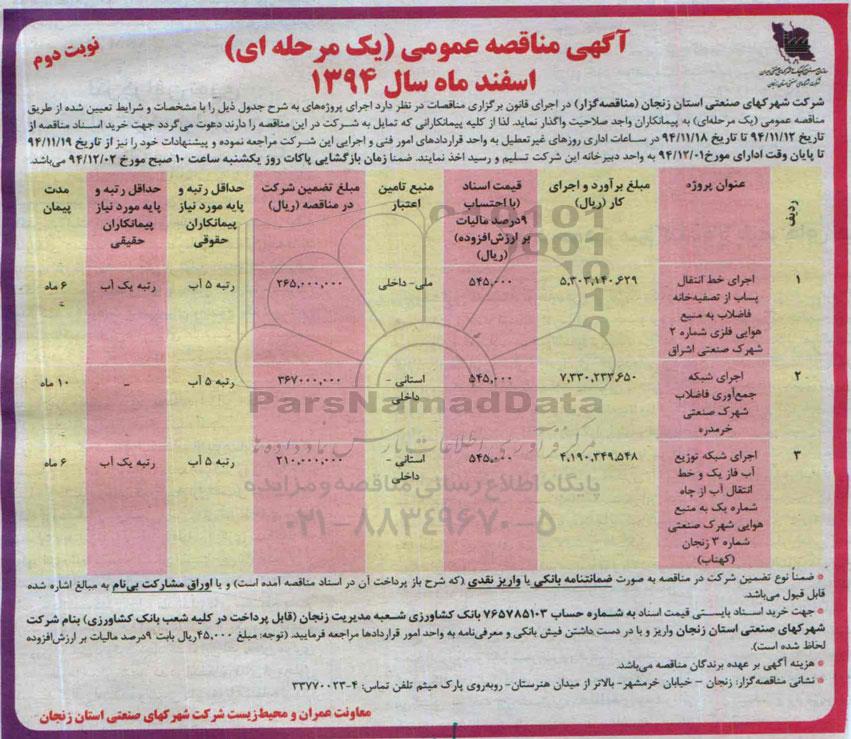 آگهی مناقصه عمومی (یک مرحله ای)
اسفند ماه سال ۱۳۹۴
نوبت دوم
شرکت شهرکهای صنعتی استان زنجان (مناقصه‌گزار) در اجرای قانون برگزاری مناقصات در نظر دارد اجرای پروژه‌های به شرح جدول ذیل را با مشخصات و شرایط تعیین شده از طریق
مناقصه عمومی (یک مرحله‌ای) به پیمانکاران واجد صلاحیت واگذار نماید. لذا از کلیه پیمانکارانی که تمایل به شرکت در این مناقصه را دارند دعوت می‌گردد جهت خرید اسناد مناقصه از
تاریخ ۹۴/۱۱/۱۲ تا تاریخ ۹۴/۱۱/۱۸ در ساعات اداری روزهای غیرتعطیل به واحد قراردادهای امور فنی و اجرایی این شرکت مراجعه نموده و پیشنهادات خود را نیز از تاریخ ۹۴/۱۱/۱۹
تا پایان وقت ادارای مورخ ۹۴/۱۲/۰۱ به واحد دبیرخانه این شرکت تسلیم و رسید اخذ نمایند. ضمنا زمان بازگشایی پاکات روز یکشنبه ساعت ۱۰ صبح مورخ ۹۴/۱۲/۰۲ می‌باشد.
ردیف
عنوان پروژه
مبلغ برآورد و اجرای
کار (ریال)
قیمت اسناد
(با احتساب
۹درصد مالیات
بر ارزش‌افزوده)
(ریال)
منبع تامین
اعتبار
مبلغ تضمین شرکت
در مناقصه (ریال)
حداقل رتبه و
پایه مورد نیاز
پیمانکاران
حقوقی
حداقل رتبه و
پایه مورد نیاز
پیمانکاران
حقیقی
مدت
پیمان
۱
اجرای خط انتقال
پساب از تصفیه‌خانه
فاضلاب به منبع
هوایی فلزی شماره ۲
شهرک صنعتی اشراق
۵,۳۰۳,۱۴۰,۶۲۹
۵۴۵,۰۰۰
ملی- داخلی
۲۶۵,۰۰۰,۰۰۰
رتبه ۵ آب
رتبه یک آب
۶ ماه
۲
اجرای شبکه
جمع‌آوری فاضلاب
شهرک صنعتی
خرمدره
۷,۳۳۰,۲۳۳,۶۵۰
۵۴۵,۰۰۰
استانی -
داخلی
۳۶۷۰۰۰,۰۰۰
رتبه ۵ آب
-
۱۰ ماه
۳
اجرای شبکه توزیع
آب فاز یک و خط
انتقال آب از چاه
شماره یک به منبع
هوایی شهرک صنعتی
شماره ۳ زنجان
(کهناب)
۴,۱۹۰,۳۴۹,۵۴۸
۵۴۵,۰۰۰
استانی -
داخلی
۲۱۰,۰۰۰,۰۰۰
رتبه ۵ آب
رتبه یک آب
۶ ماه
ParsNamadData
مرکز فرآوری اطلاعات پارس نماد داده ها
پایگاه اطلاع رسانی مناقصه و مزایده
۰۲۱-۸۸۳۴۹۶۷۰-۵
* ضمناً نوع تضمین شرکت در مناقصه به صورت ضمانتنامه بانکی یا واریز نقدی (که شرح باز پرداخت آن در اسناد مناقصه آمده است) و یا اوراق مشارکت بی‌نام به مبالغ اشاره شده
قابل قبول می‌باشد.
* جهت خرید اسناد بایستی قیمت اسناد به شماره حساب ۷۶۵۷۸۵۱۰۳ بانک کشاورزی شعبه مدیریت زنجان (قابل پرداخت در کلیه شعب بانک کشاورزی) بنام شرکت
شهرکهای صنعتی استان زنجان واریز و با در دست داشتن فیش بانکی و معرفی‌نامه به واحد امور قراردادها مراجعه فرمایید. (توجه: مبلغ ۴۵,۰۰۰ریال بابت ۹درصد مالیات بر ارزش‌افزوده
لحاظ شده است).
* هزینه آگهی بر عهده برندگان مناقصه می‌باشد.
* نشانی مناقصه‌گزار: زنجان – خیابان خرمشهر- بالاتر از میدان هنرستان- روبه‌روی پارک میثم تلفن تماس: ۴-۳۳۷۷۰۰۲۳
معاونت عمران و محیط‌زیست شرکت شهرکهای صنعتی استان زنجان